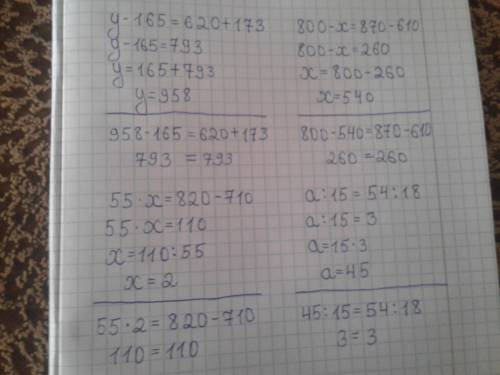 y-165=620+173
y-165=793
y=165+793
y=958
958-165=620+173
793=793
800-x=870-610
800-x=260
x=800-260
x=540
800-540=870-610
260=260
55·x=820-710
55·x=110
x=110:55
x=2
55·2=820-710
110=110
a:15=54:18
a:15=3
a=15·3
a=45
45:15=54:18
3=3